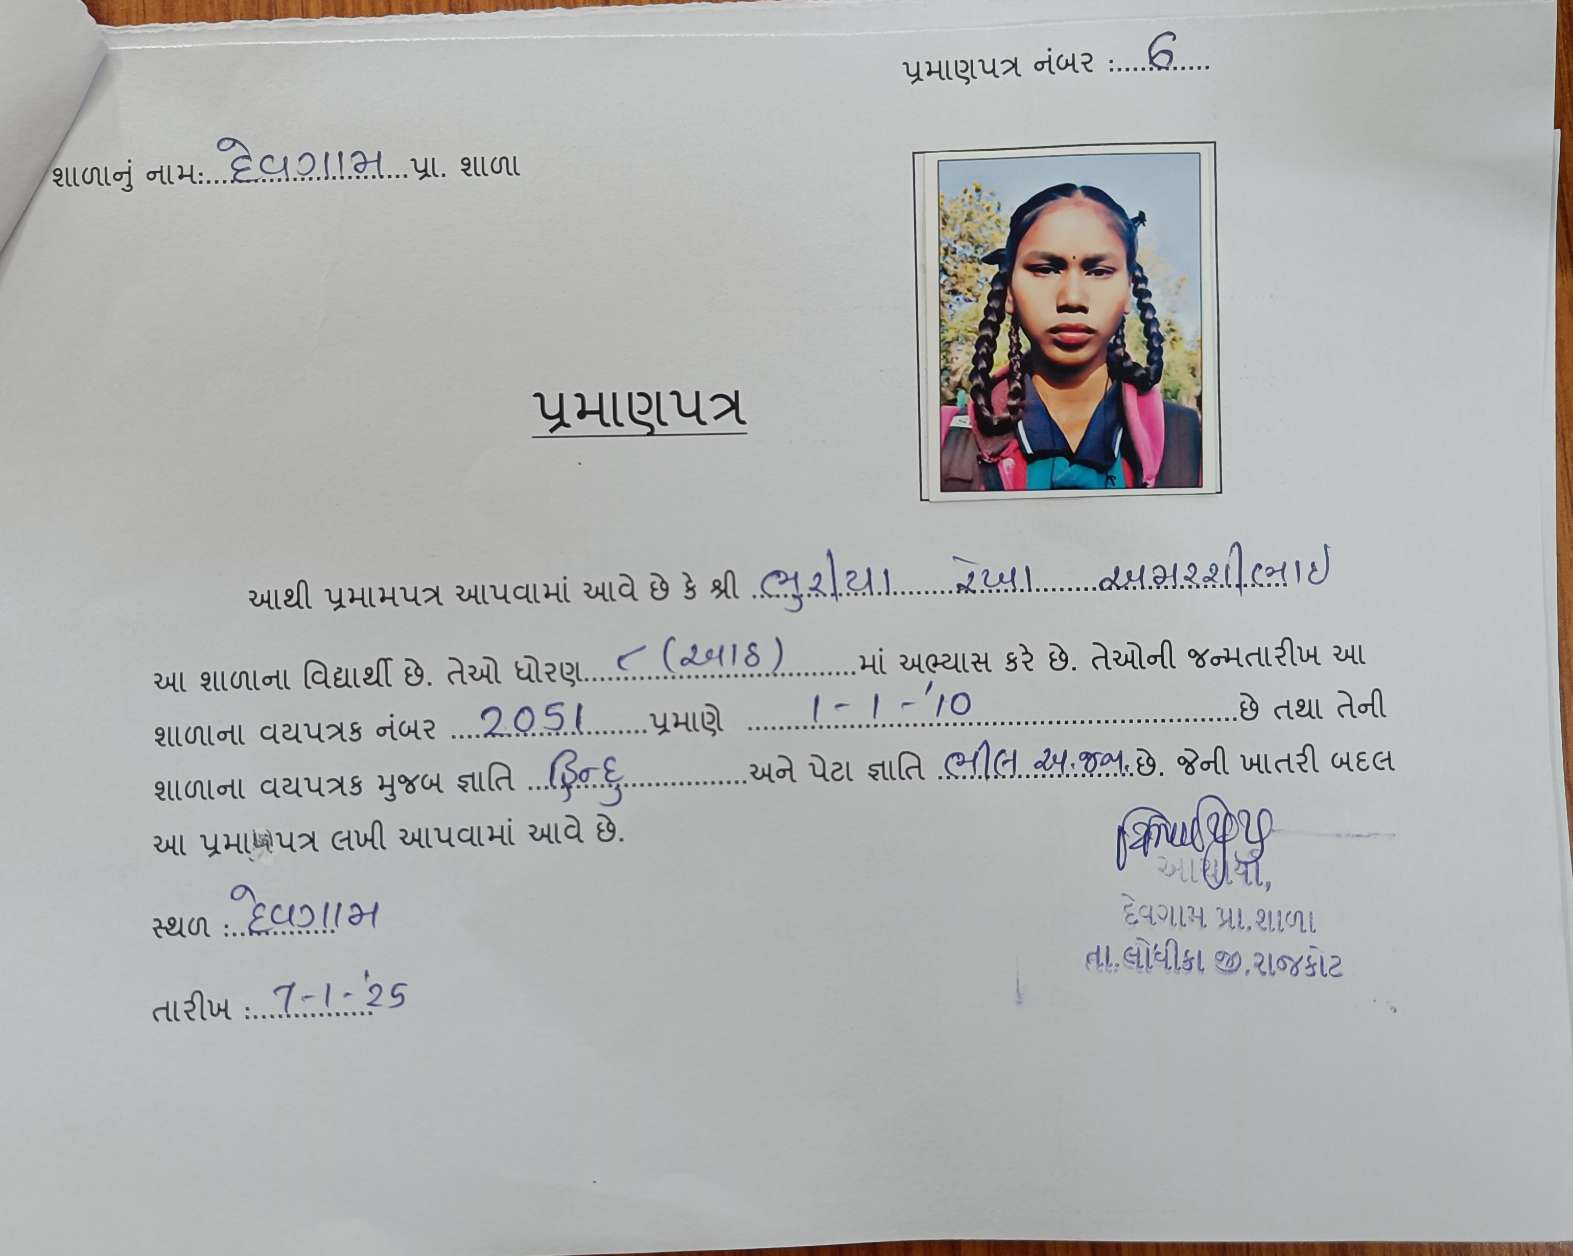 પ્રમાણપત્ર નંબર :....6....
શાળાનું નામ:....દેવગામ....પ્રા. શાળા
પ્રમાણપત્ર
આથી પ્રમામપત્ર આપવામાં આવે છે કે શ્રી ....ભુરીયા....રેખા....અમરશીભાઇ
આ શાળાના વિદ્યાર્થી છે. તેઓ ધોરણ....૮ (આઠ)....માં અભ્યાસ કરે છે. તેઓની જન્મતારીખ આ
શાળાના વયપત્રક નંબર ....2051....પ્રમાણે ....1-1-'10....છે તથા તેની
શાળાના વયપત્રક મુજબ જ્ઞાતિ ....હિન્દુ....અને પેટા જ્ઞાતિ ....ભીલ અ.જ.જા.છે. જેની ખાતરી બદલ
આ પ્રમાણપત્ર લખી આપવામાં આવે છે.
આચાર્ય,
સ્થળ :..દેવગામ
દેવગામ પ્રા.શાળા
તા.લોધીકા જી.રાજકોટ
તારીખ :..7-1-'25